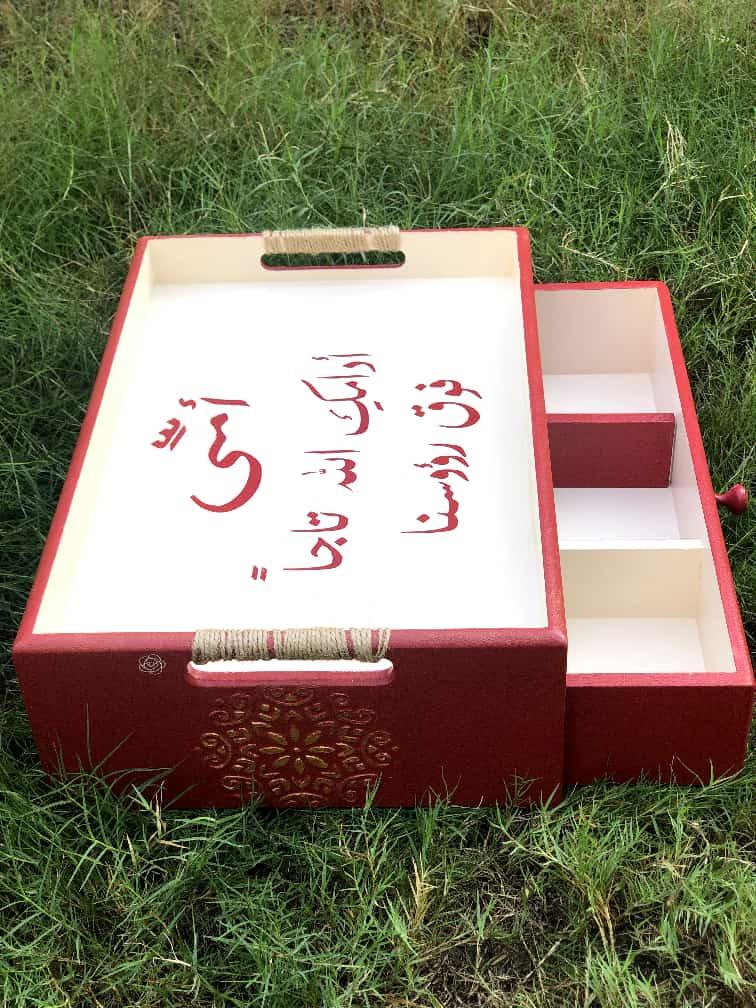 أمّي
أدامكِ الله تاجاً
فوق رؤوسنا